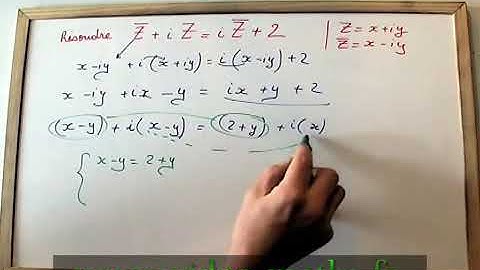 Résoudre Z̅ + i Z = i Z̅ + 2
Z = x + iy
Z̅ = x - iy
x - iy + i(x + iy) = i(x - iy) + 2
x - iy + ix - y = ix + y + 2
(x - y) + i(x - y) = (2 + y) + i(x)
{ x - y = 2 + y